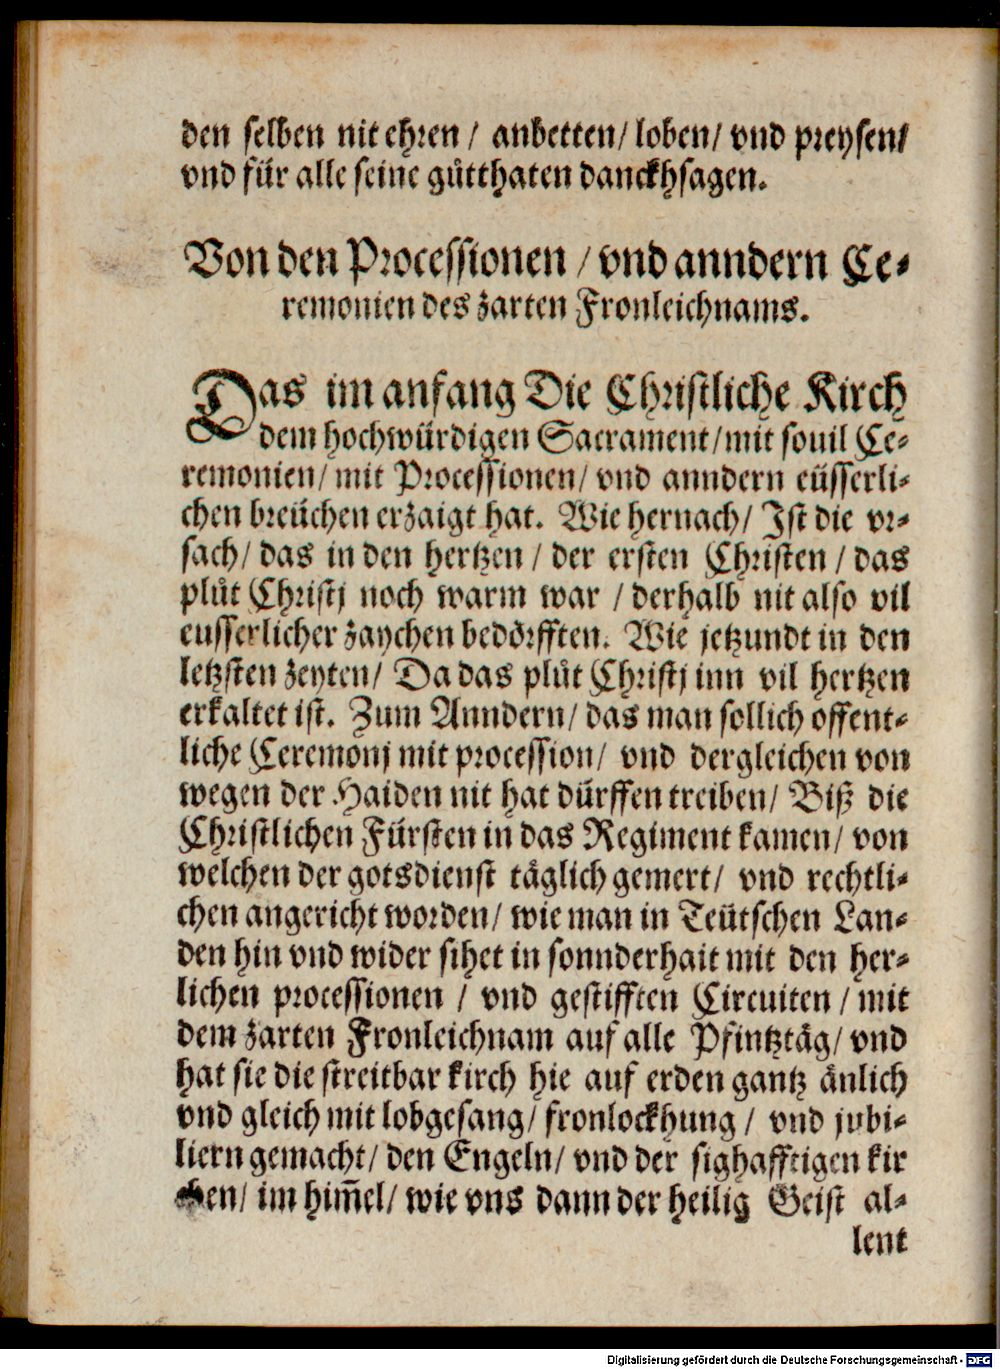 den selben nit ehren / anbetten/ loben/ vnd preysen/
vnd für alle seine gůtthaten danckhsagen.
Von den Processionen / vnd anndern Ce⸗
remonien des zarten Fronleichnams.
Das im anfang Die Christliche Kirch
dem hochwürdigen Sacrament/ mit souil Ce⸗
remonien/ mit Processionen/ vnd anndern eüsserli⸗
chen breüchen erzaigt hat. Wie hernach/ Ist die vr⸗
sach/ das in den hertzen / der ersten Christen / das
plůt Christj noch warm war / derhalb nit also vil
eusserlicher zaychen bedörfften. Wie jetzundt in den
letzsten zeyten/ Da das plůt Christj inn vil hertzen
erkaltet ist. Zum Anndern/ das man sollich offent⸗
liche Ceremonj mit procession/ vnd dergleichen von
wegen der Haiden nit hat dürffen treiben/ Biß die
Christlichen Fürsten in das Regiment kamen/ von
welchen der gotsdienst täglich gemert/ vnd rechtli⸗
chen angericht worden/ wie man in Teütschen Lan⸗
den hin vnd wider sihet in sonnderhait mit den her⸗
lichen processionen / vnd gestifften Circuiten / mit
dem zarten Fronleichnam auf alle Pfintztäg/ vnd
hat sie die streitbar kirch hie auf erden gantz änlich
vnd gleich mit lobgesang/ fronlockhung / vnd jubi⸗
liern gemacht/ den Engeln/ vnd der sighafftigen kir
chen/ im him̄el/ wie vns dann der heilig Geist al⸗
lent
Digitalisierung gefördert durch die Deutsche Forschungsgemeinschaft - DFG